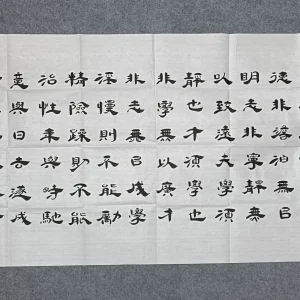 德非澹泊無以
明志非寧靜無
以致遠夫學須
靜也才須學也
非學無以廣才
非志無以成學
淫慢則不能勵
精險躁則不能
治性年與時馳
意與日去遂成